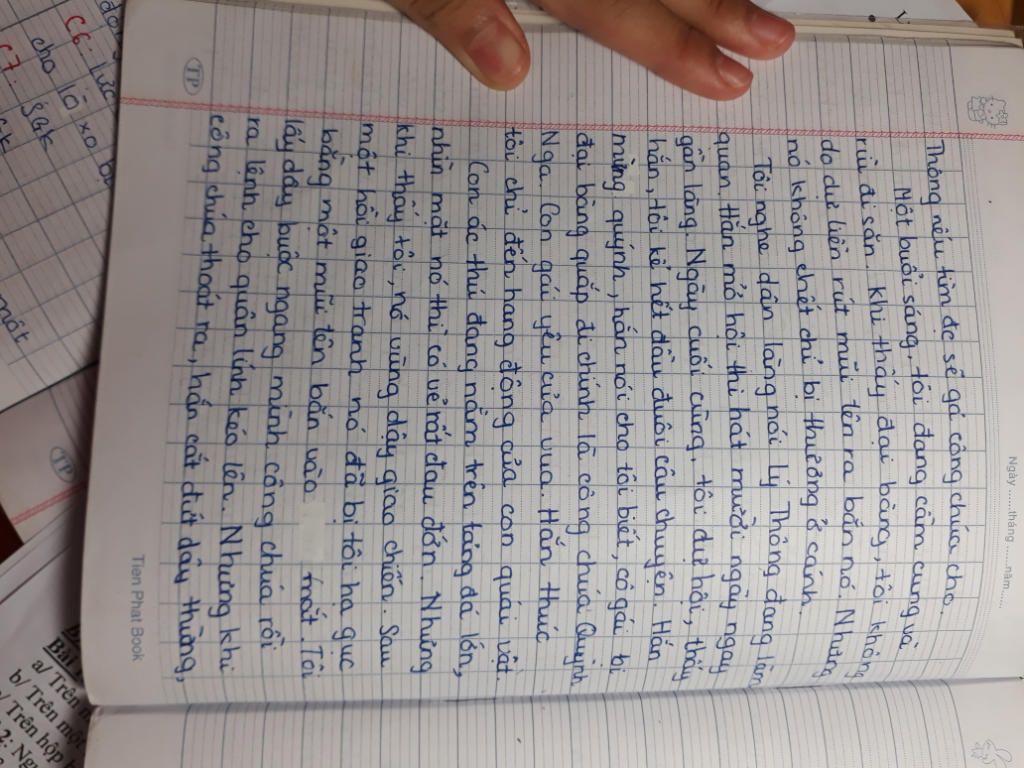 Thông nếu tìm đc sẽ gả công chúa cho.
Một buổi sáng, tôi đang cầm cung và
rìu đi săn. Khi thấy đại bàng, tôi không
do dự liền rút mũi tên ra bắn nó. Nhưng
nó không chết chỉ bị thương ở cánh.
Tôi nghe dân làng nói Lý Thông đang làm
quan. Hắn mở hội thi hát mười ngày ngay
gần làng. Ngày cuối cùng, tôi dự hội, thấy
hắn, tôi kể hết đầu đuôi câu chuyện. Hắn
mừng quýnh, hắn nói cho tôi biết, cô gái bị
đại bàng quắp đi chính là công chúa Quỳnh
Nga. Con gái yêu của vua. Hắn thúc
tôi chỉ đến hang động của con quái vật.
Con ác thú đang nằm trên tảng đá lớn,
nhìn mặt nó thì có vẻ rất đau đớn. Nhưng
khi thấy tôi, nó vùng dậy giao chiến. Sau
một hồi giao tranh nó đã bị tôi hạ gục
bằng một mũi tên bắn vào mắt. Tôi
lấy dây buộc ngang mình công chúa rồi
ra lệnh cho quân lính kéo lên. Nhưng khi
công chúa thoát ra, hắn cắt đứt dây thừng,
Ngày ......tháng ......năm......
TP
Tien Phat Book
TP
C6:
C7:
cho lò xo
một
Bài
a/ Trên
b/ Trên một
/ Trên hộp